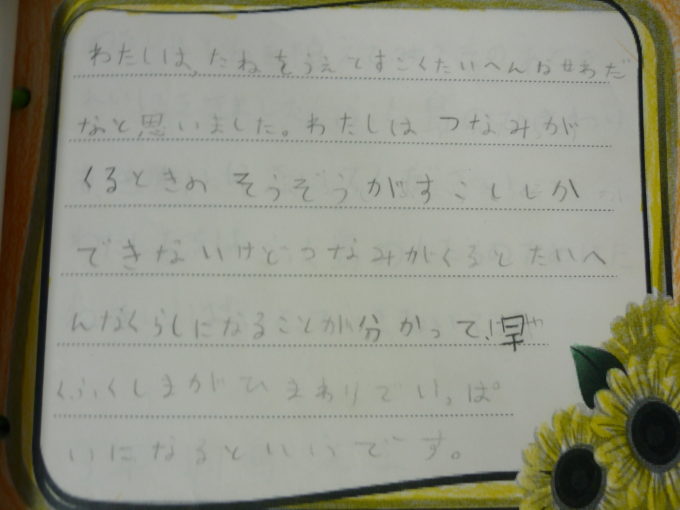 わたしは、たねをうえてすごくたいへんなせわだ
なと思いました。わたしは つなみが
くるときの そうぞうがすこししか
できないけどつなみがくるとたいへ
んなくらしになることが分かって、早
くふくしまがひまわりでいっぱ
いになるといいです。